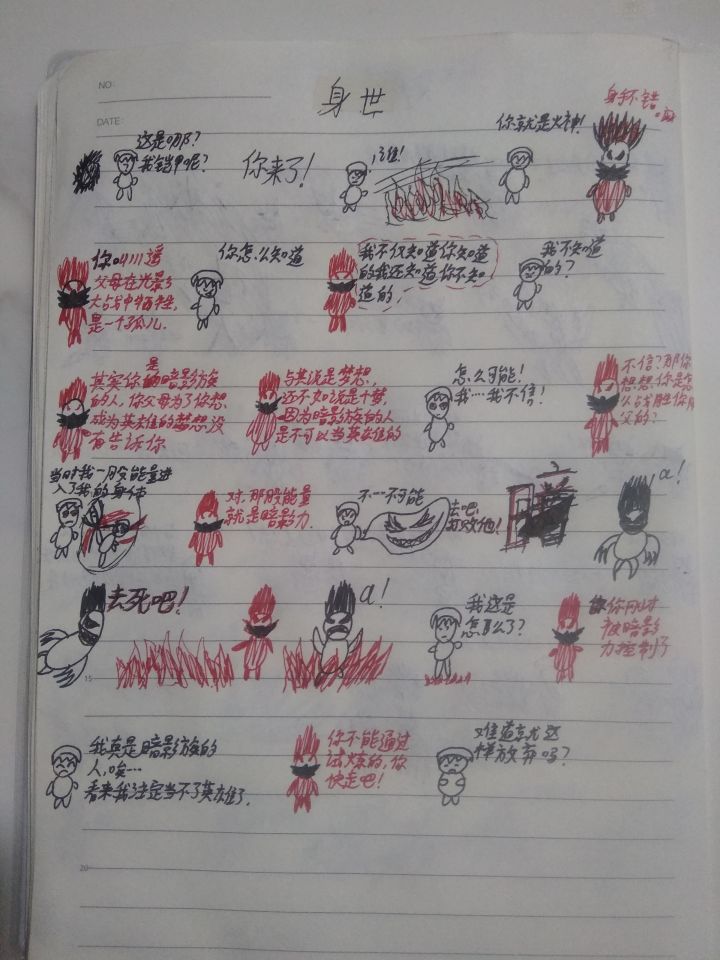 NO:
DATE:
身世
这是哪?
我铠甲呢?
你来了!
谁!
你就是火神!
身手不错
你叫川遥
父母在光影
大战中牺牲,
是一个孤儿.
你怎么知道
我不仅知道你知道
的我还知道你不知
道的,
我不知道
的?
是
其实你的暗影族
的人,你父母为了你想
成为英雄的梦想没
有告诉你
与其说是梦想,
还不如说是个梦,
因为暗影族的人
是不可以当英雄的
怎么可能!
我…我不信!
不信?那你
想想,你是怎
么战胜你
父的?
当时我一股能量进
入了我的身体
对.那股能量
就是暗影力.
不…不可能
去吧,
打败他!
暗
a!
去死吧!
a!
我这是
怎么了?
你刚才
被暗影
力控制了
15
我真是暗影族的
人,唉…
看来我注定当不了英雄了.
你不能通过
试炼的,你
快走吧!
难道就这
样放弃吗?
20